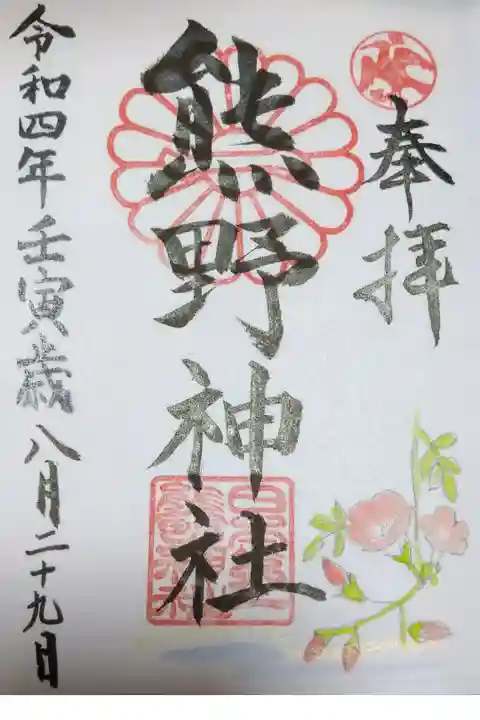 奉拝
熊野神社
令和四年壬寅歳八月二十九日